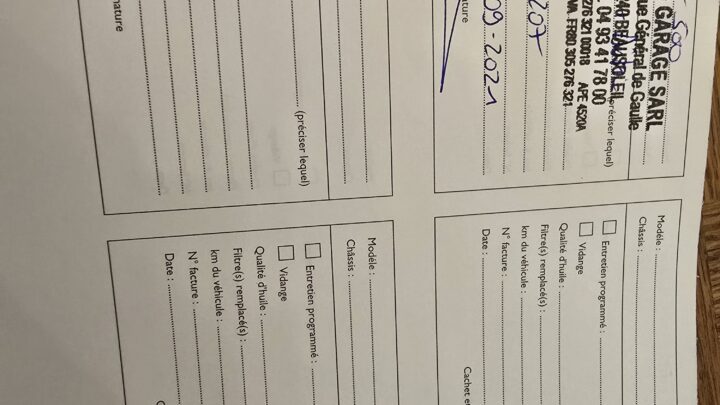 500
GARAGE SARL
ue Général de Gaulle
BEAUSOLEIL
préciser lequel)
04 93 41 78 00
276 321 00018 APE 4520A
FR80 305 276 321
207
09-2021
nature
Modèle :
Châssis :
Entretien programmé :
Vidange
Qualité d'huile :
Filtre(s) remplacé(s) :
km du véhicule :
N° facture :
Date :
Cachet e
(préciser lequel)
nature
Modèle :
Châssis :
Entretien programmé :
Vidange
Qualité d'huile :
Filtre(s) remplacé(s) :
km du véhicule :
N° facture :
Date :